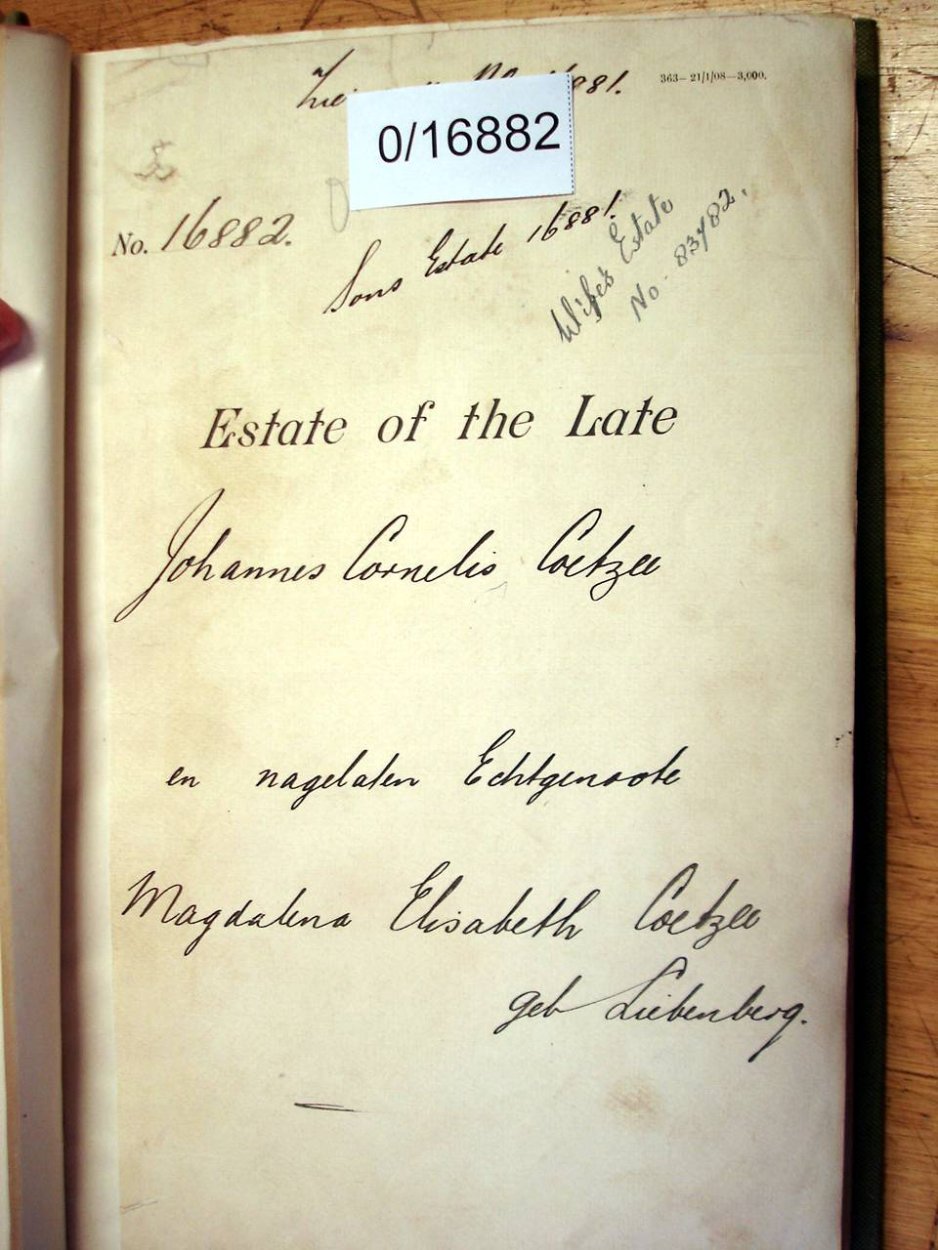 363—21/1/08—3,000.
0/16882
No. 16882.
Sons Estate 16881.
Wife's Estate
No. 83782.
Estate of the Late
Johannes Cornelis Coetzee
en nagelaten Echtgenoote
Magdalena Elisabeth Coetzee
geb Liebenberg.